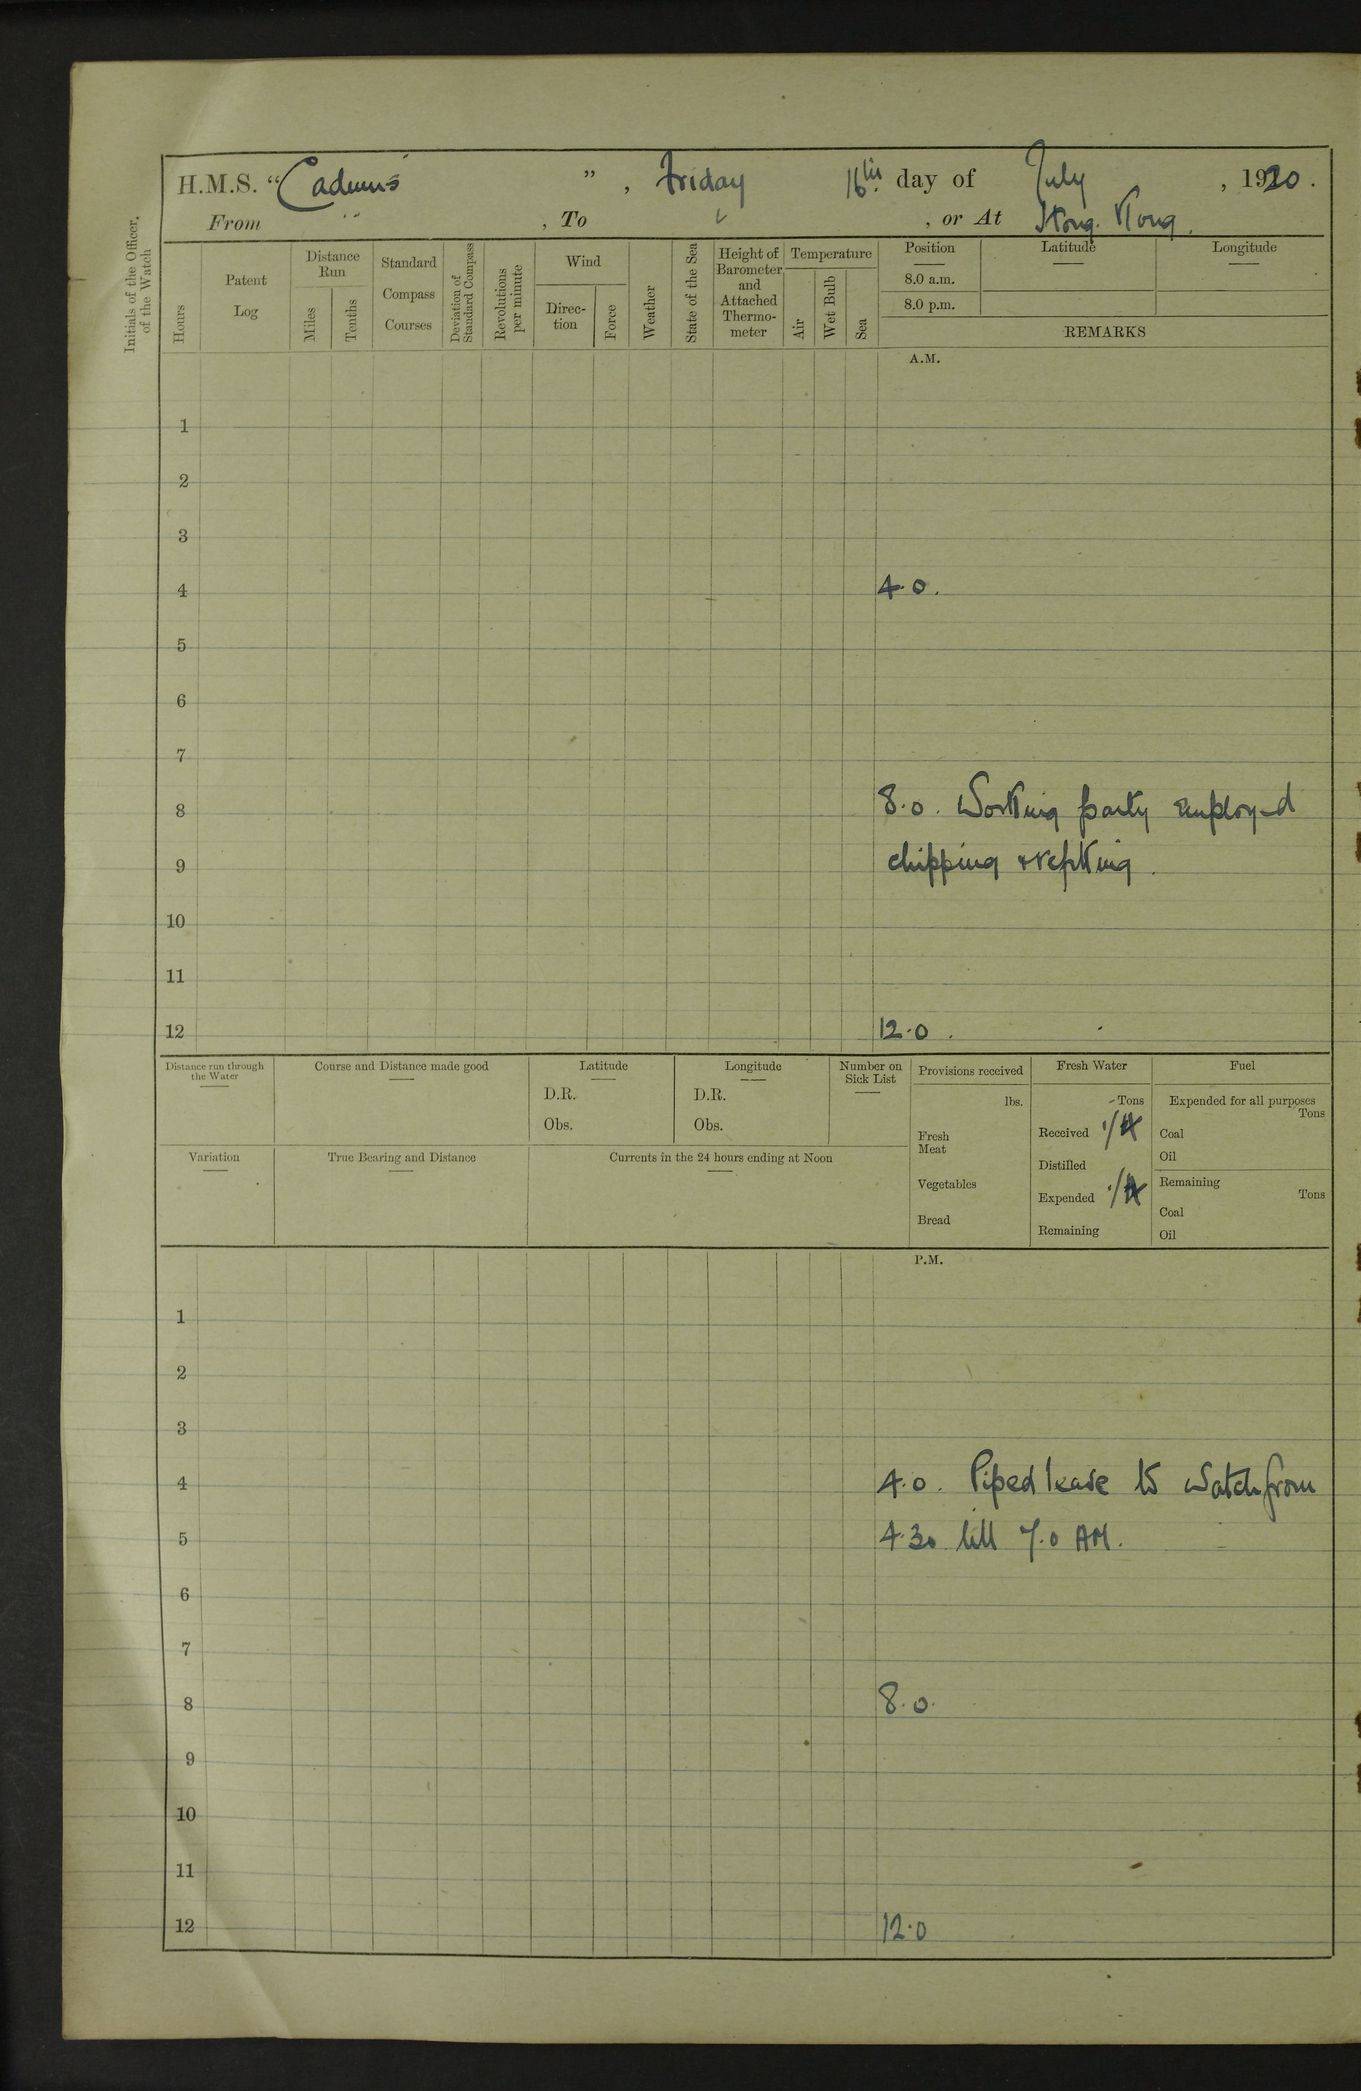 H.M.S. “Cadmus”, Friday 16th day of July, 1920.
From , To , or At Hong Kong.
Initials of the Officer of the Watch
Hours
Patent Log
Distance Run
Miles
Tenths
Standard Compass Courses
Deviation of Standard Compass
Revolutions per minute
Wind
Direction
Force
Weather
State of the Sea
Height of Barometer and Attached Thermometer
Temperature
Air
Wet Bulb
Sea
Position Latitude Longitude
8.0 a.m.
8.0 p.m.
REMARKS
A.M.
1
2
3
4 4.0.
5
6
7
8 8.0. Working party employed
9 chipping
10
11
12 12.0.
Distance run through the Water
Course and Distance made good
Latitude
D.R.
Obs.
Longitude
D.R.
Obs.
Number on Sick List
Variation
True Bearing and Distance
Currents in the 24 hours ending at Noon
Provisions received
lbs.
Fresh Meat
Vegetables
Bread
Fresh Water
Tons
Received
Distilled
Expended
Remaining
Fuel
Expended for all purposes
Tons
Coal
Oil
Remaining
Tons
Coal
Oil
P.M.
1
2
3
4 4.0. Piped leave to watch from
5 4.30 till 7.0 AM.
6
7
8 8.0.
9
10
11
12 12.0